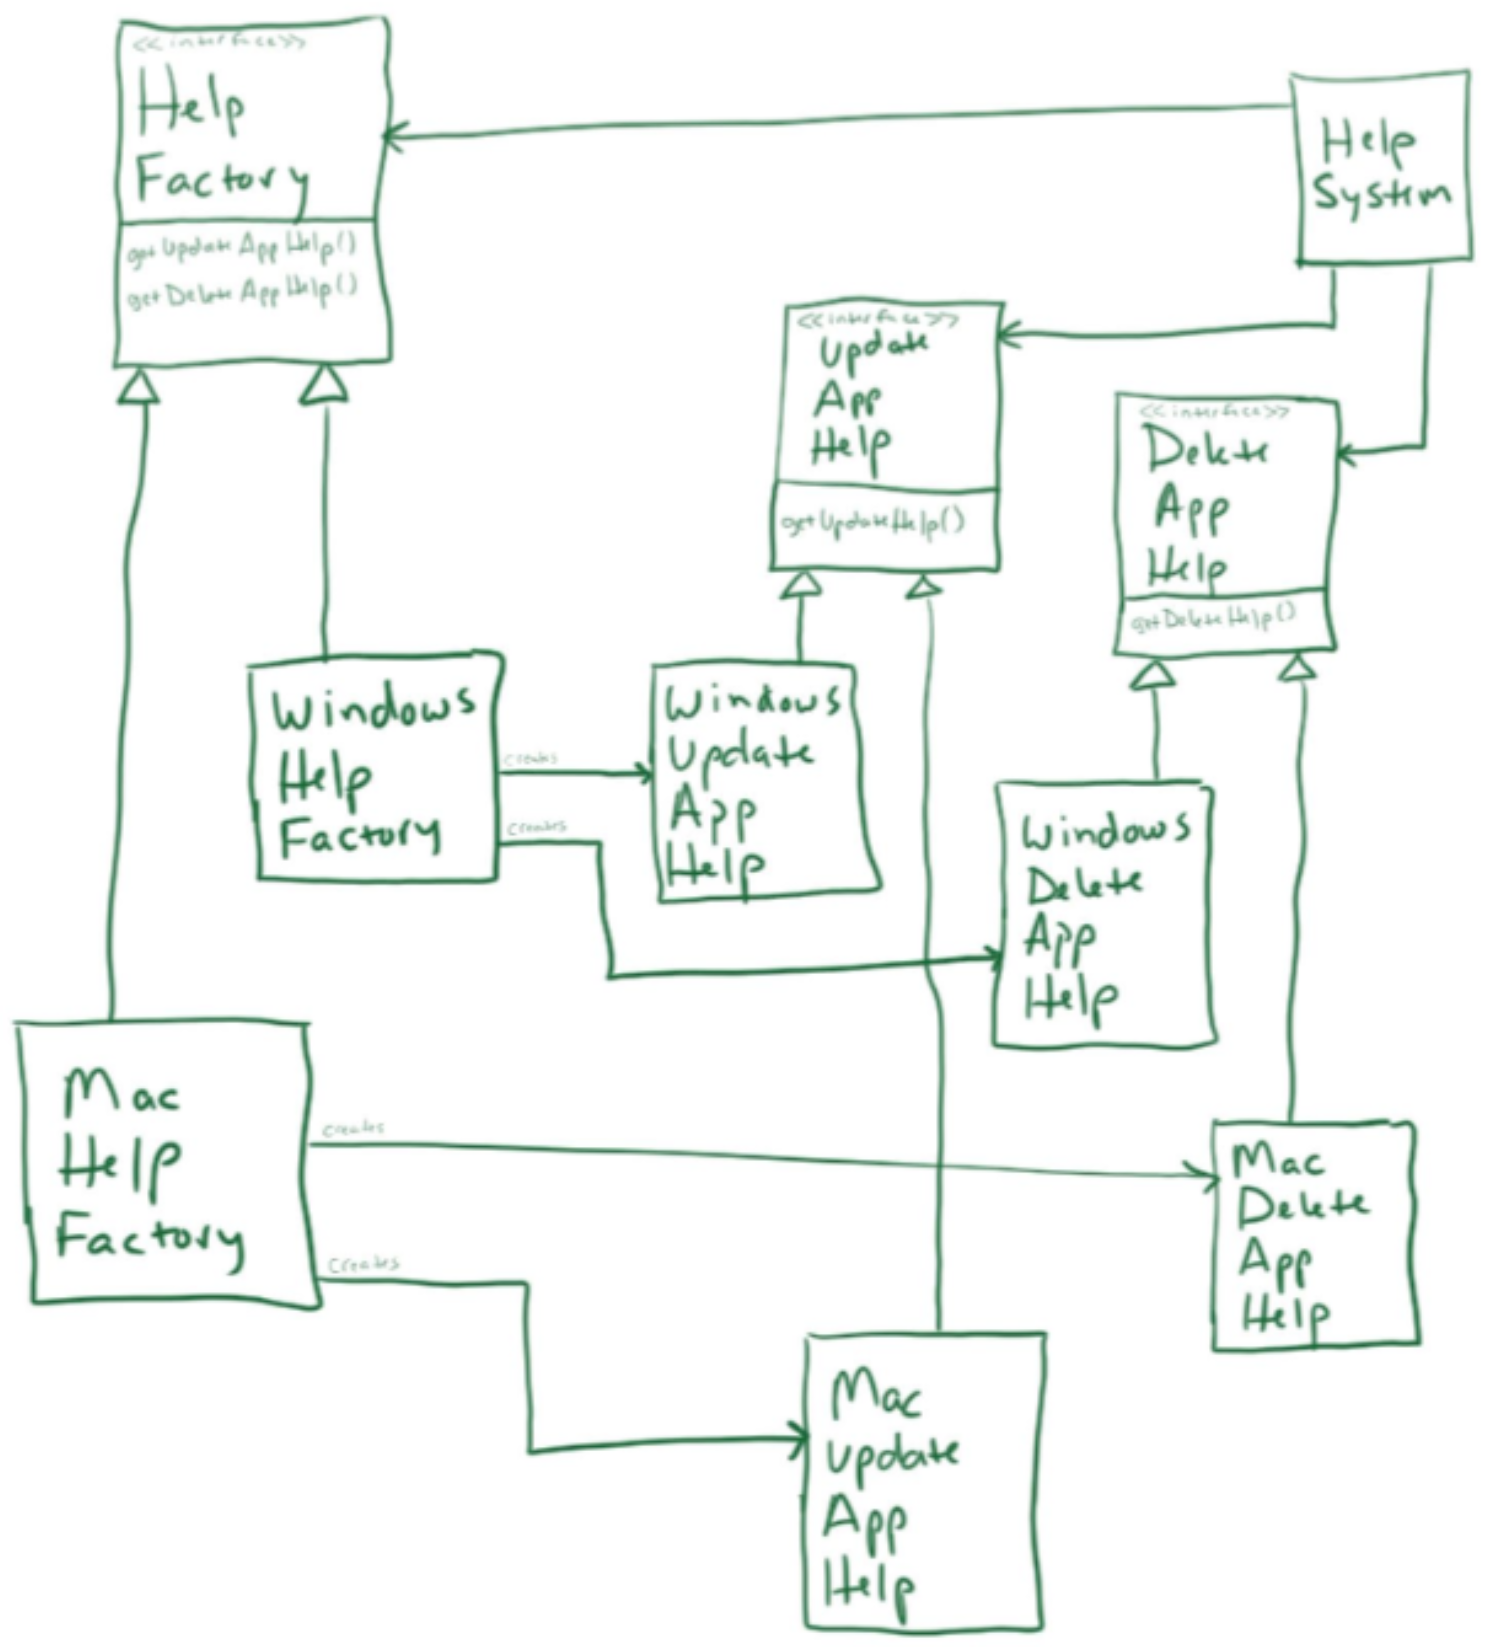 <<interface>>
Help
Factory
getUpdateAppHelp()
getDeleteAppHelp()
Help
System
<<interface>>
Update
App
Help
getUpdateHelp()
<<interface>>
Delete
App
Help
getDeleteHelp()
Windows
Help
Factory
creates
creates
Windows
Update
App
Help
Windows
Delete
App
Help
Mac
Help
Factory
creates
creates
Mac
Delete
App
Help
Mac
Update
App
Help